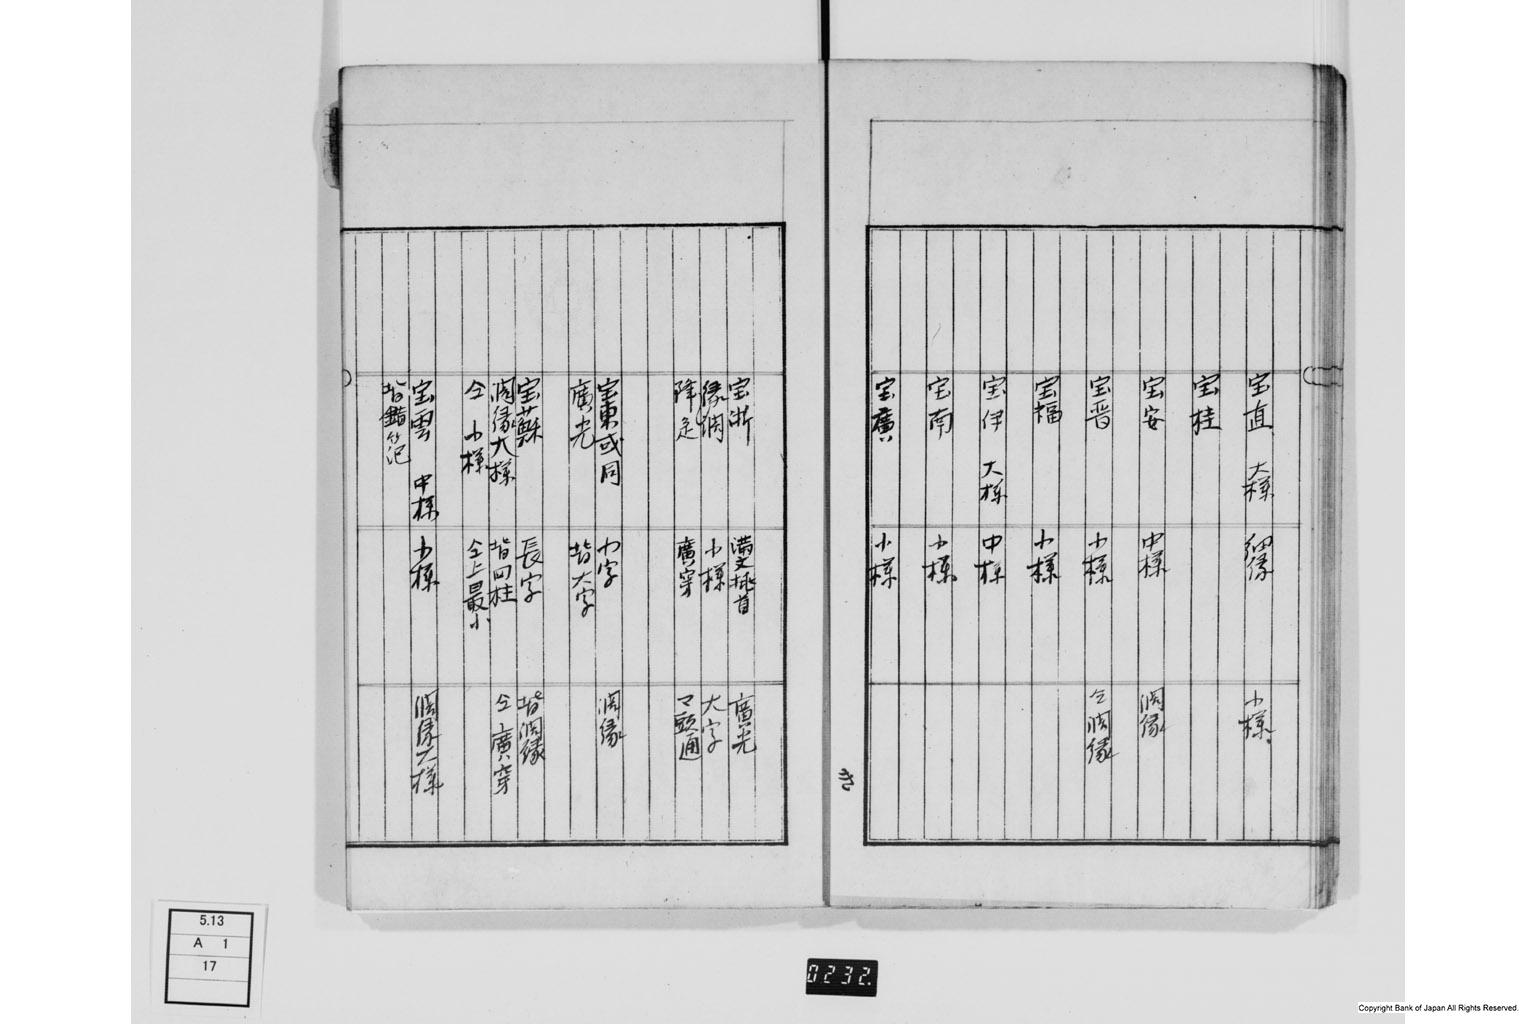 宝直　大様
細縁
小様
宝桂
宝安
中様
濶縁
宝晋
小様
仝濶縁
宝福
小様
宝伊　大様
中様
宝南
小様
宝廣
小様
宝浙
縁濶
降足
小様
廣穿
廣光
大字
マ頭通
宝東或同
廣光
小字
皆大字
濶縁
宝蘇
濶縁大様
仝　小様
長字
皆四柱
仝上最小
皆濶縁
仝廣穿
宝雲　中様
小様
濶縁大様
5.13
A 1
17
0232.
Copyright Bank of Japan All Rights Reserved.